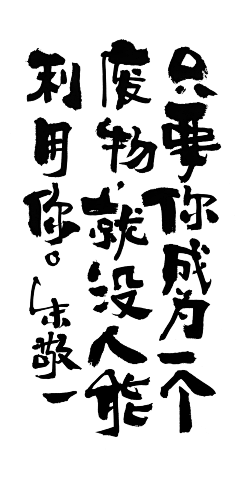 只要你成为一个
废物,就没人能
利用你。朱敬一